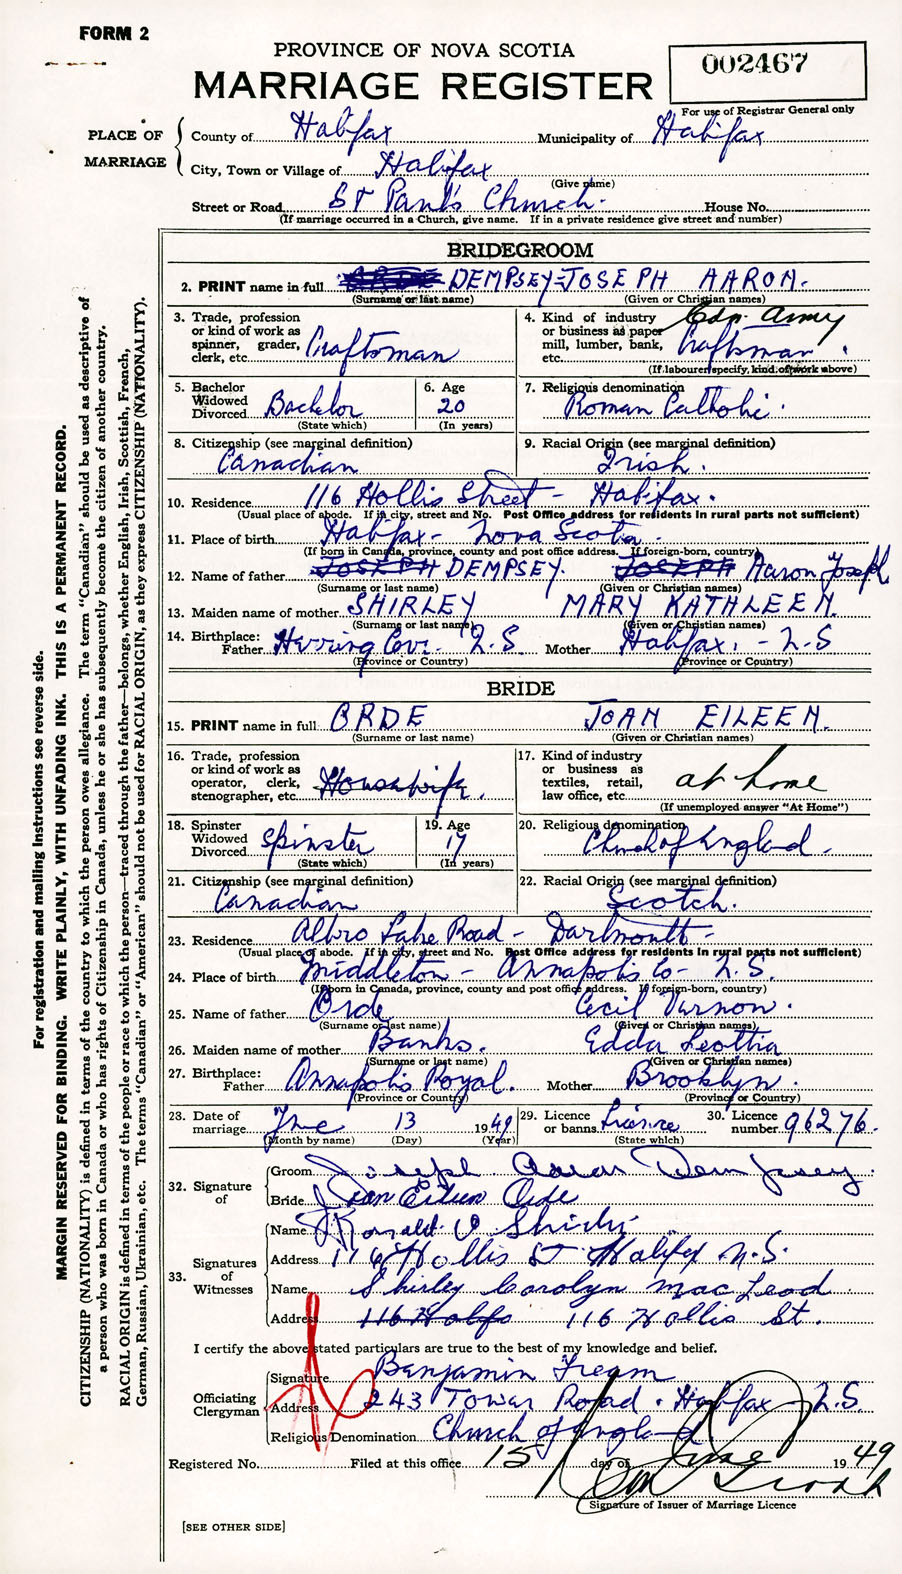 FORM 2
PROVINCE OF NOVA SCOTIA
MARRIAGE REGISTER
002467
For use of Registrar General only
PLACE OF MARRIAGE
County of Halifax Municipality of Halifax
City, Town or Village of Halifax
(Give name)
Street or Road St Paul's Church. House No.
(If marriage occurred in a Church, give name. If in a private residence give street and number)
BRIDEGROOM
2. PRINT name in full ORDE DEMPSEY-JOSEPH AARON.
(Surname or last name) (Given or Christian names)
3. Trade, profession or kind of work as spinner, grader, clerk, etc. Craftsman
4. Kind of industry or business as paper mill, lumber, bank, etc. Cdn. Army Craftsman.
(If labourer specify, kind of work above)
5. Bachelor Widowed Divorced Bachelor
(State which)
6. Age 20
(In years)
7. Religious denomination Roman Catholic.
8. Citizenship (see marginal definition) Canadian
9. Racial Origin (see marginal definition) Irish.
10. Residence 116 Hollis Street - Halifax.
(Usual place of abode. If in city, street and No. Post Office address for residents in rural parts not sufficient)
11. Place of birth Halifax - Nova Scotia.
(If born in Canada, province, county and post office address. If foreign-born, country)
12. Name of father JOSEPH DEMPSEY. JOSEPH Aaron Joseph
(Surname or last name) (Given or Christian names)
13. Maiden name of mother SHIRLEY MARY KATHLEEN.
(Surname or last name) (Given or Christian names)
14. Birthplace: Father Herring Cove - N.S. Mother Halifax, - N.S
(Province or Country) (Province or Country)
BRIDE
15. PRINT name in full ORDE JOAN EILEEN.
(Surname or last name) (Given or Christian names)
16. Trade, profession or kind of work as operator, clerk, stenographer, etc. Housewife.
17. Kind of industry or business as textiles, retail, law office, etc. at home
(If unemployed answer "At Home")
18. Spinster Widowed Divorced Spinster
(State which)
19. Age 17
(In years)
20. Religious denomination Church of England.
21. Citizenship (see marginal definition) Canadian
22. Racial Origin (see marginal definition) Scotch.
23. Residence Albro Lake Road - Dartmouth -
(Usual place of abode. If in city, street and No. Post Office address for residents in rural parts not sufficient)
24. Place of birth Middleton - Annapolis Co - N.S.
(If born in Canada, province, county and post office address. If foreign-born, country)
25. Name of father Orde Cecil Vernon.
(Surname or last name) (Given or Christian names)
26. Maiden name of mother Banks. Edda Leottia
(Surname or last name) (Given or Christian names)
27. Birthplace: Father Annapolis Royal. Mother Brooklyn.
(Province or Country) (Province or Country)
28. Date of marriage June 13 1949
(Month by name) (Day) (Year)
29. Licence or banns License
(State which)
30. Licence number 96276.
32. Signature of
Groom Joseph Aaron Dempsey.
Bride Joan Eileen Orde
33. Signatures of Witnesses
Name Ronald V Shirley
Address 116 Hollis St Halifax N.S.
Name Shirley Carolyn MacLeod
Address 116 Halifx 116 Hollis St.
I certify the above stated particulars are true to the best of my knowledge and belief.
Officiating Clergyman
Signature Benjamin
Address 243 Tower Road. Halifax N.S.
Religious Denomination Church of England
Registered No. Filed at this office 15 day of June 1949
Signature of Issuer of Marriage Licence
[SEE OTHER SIDE]
For registration and mailing instructions see reverse side.
MARGIN RESERVED FOR BINDING. WRITE PLAINLY, WITH UNFADING INK. THIS IS A PERMANENT RECORD.
CITIZENSHIP (NATIONALITY) is defined in terms of the country to which the person owes allegiance. The term "Canadian" should be used as descriptive of
a person who was born in Canada or who has rights of Citizenship in Canada, unless he or she has subsequently become the citizen of another country.
RACIAL ORIGIN is defined in terms of the people or race to which the person—traced through the father—belongs, whether English, Irish, Scottish, French,
German, Russian, Ukrainian, etc. The terms "Canadian" or "American" should not be used for RACIAL ORIGIN, as they express CITIZENSHIP (NATIONALITY).